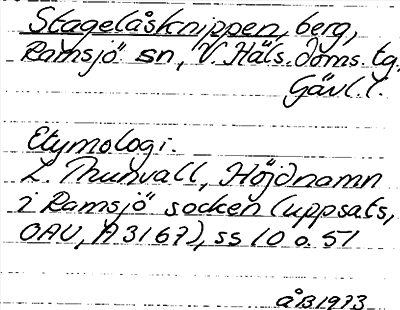 Stagelåsknippen, berg,
Ramsjö sn, V. Häls. doms. tg,
Gävl. l.
Etymologi.
L. Thunvall, Höjdnamn
i Ramsjö socken (uppsats,
OAU, A 3167), ss 10 o. 51
ÅB 1973